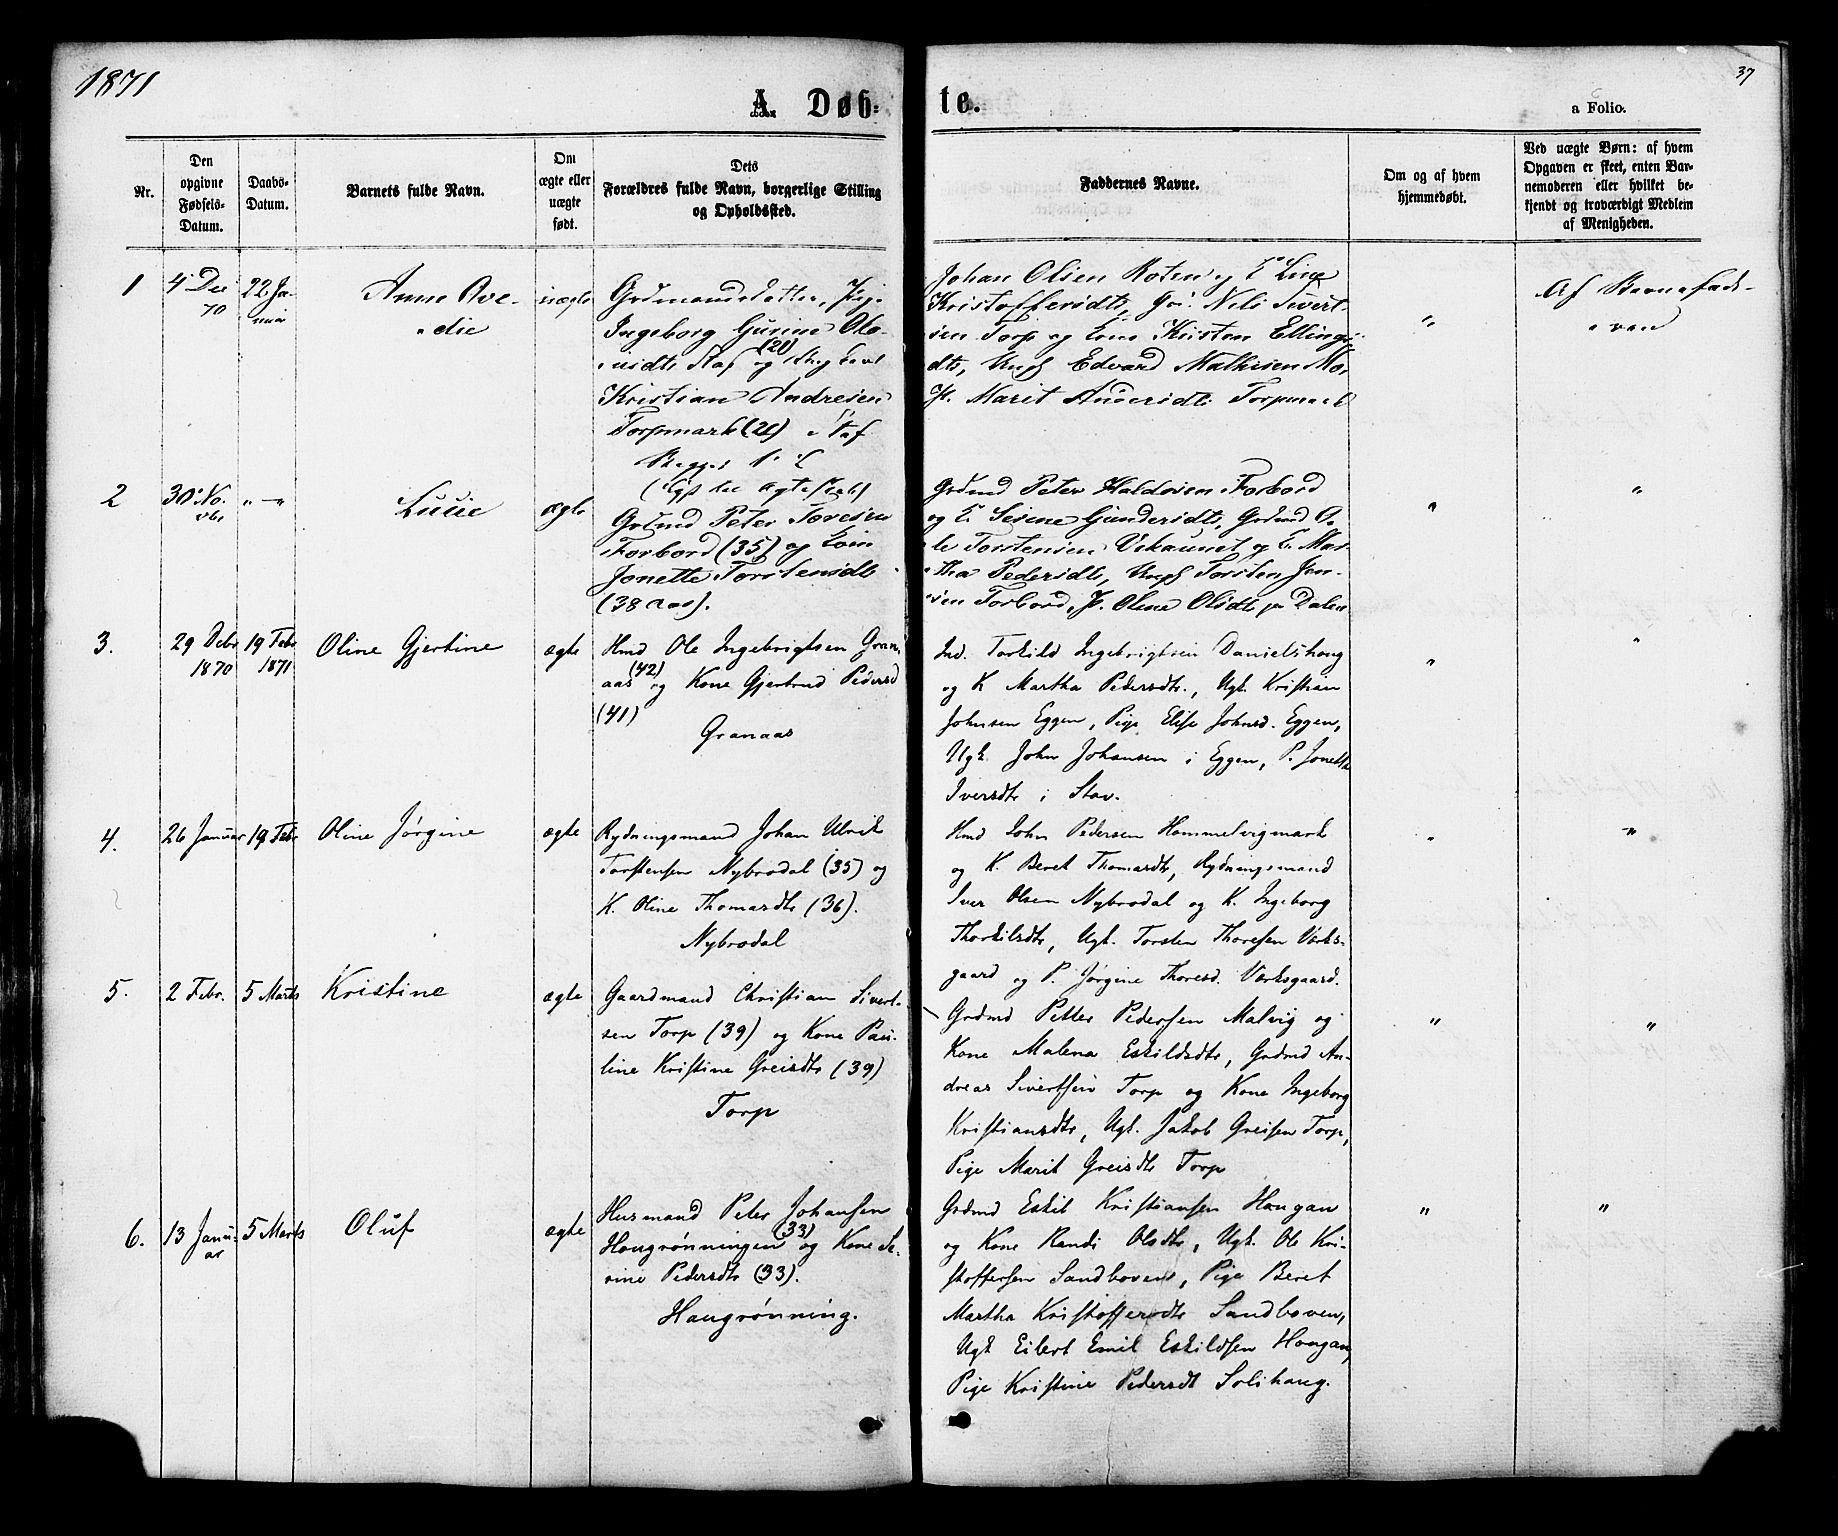 1871
A. Døb-
te.
37
a Folio.
Nr.
Den
opgivne
Fødsels-
Datum.
Daabs-
Datum.
Barnets fulde Navn.
Om
ægte eller
uægte
født.
Dets
Forældres fulde Navn, borgerlige Stilling
og Opholdssted.
Faddernes Navne.
Om og af hvem
hjemmedøbt.
Ved uægte Børn: af hvem
Opgaven er skeet, enten Bar-
nemoderen eller hvilket be-
kjendt og troværdigt Medlem
af Menigheden.
1
4 Dec
70
22 Ja-
nuar
Anne Ove-
die
uægte
Grdmandsdatter, Pige
Ingeborg Gurine Olo-
(21)
Kristian Andresen
Torpmark (21)
Johan Olsen
Kristoffersdtr, Nils Sivert-
sen Torp og Kristen Ellings-
dtr, Ungk Edvard Mathisen Mo,
P. Marit Andersdtr Torpmark
"
Af Barnefad-
eren
2
30 No-
vbr
" — "
Lusie
ægte
Grdmd Peter Toresen
Forbord (35) og Kone
Jonette Torstensdtr
(38 Aar).
Grdmd Peter Haldosen Forbord
og K. Serene Gundersdtr, Grdmd O-
le Torstensen Vikaunet og K. Mar-
tha Pedersdtr, Ungk Torsten Jen-
sen Forbord, P. Olene Olsdtr Dalen
"
"
3.
29 Debr
1870
19 Febr
1871
Oline Gjertine
ægte
Hmd Ole Ingebrigtsen Gran-
aas (42) og Kone Gjertrud Pedersd
(41)
Granaas
Ind. Torkild Ingebrigtsen Danielshaug
og K Martha Pedersdtr., Ugk. Kristian
Johnsen Eggen, Pige Elise Johnsd. Eggen,
Ugk. John Johansen i Eggen, P. Jonetta
Iversdtr i Stav.
"
"
4.
26 Januar
19 Febr
Oline Jørgine
ægte
Rydningsmand Johan Ulrik
Torstensen Nybrodal (35) og
K. Oline Thomasdtr (36).
Nybrodal
Hmd John Pedersen Hommelvigmark
og K. Beret Thomasdtr, Rydningsmand
Iver Olsen Nybrodal og K. Ingeborg
Thorkilsdtr, Ugk. Torsten Thoresen Værks-
gaard og P. Jørgine Thoresd. Værksgaard.
"
"
5.
2 Febr.
5 Marts
Kristine
ægte
Gaardmand Christian Sivert-
sen Torp (39) og Kone Pau-
line Kristine Greisdtr (39)
Torp
Grdmd Petter Pedersen Malvig og
Kone Malena Eskildsdtr, Grdmd An-
dreas Sivertsen Torp og Kone Ingeborg
Kristiansdtr, Ugk. Jakob Greisen Torp,
Pige Marit Greisdtr Torp
"
"
6.
13 Janu-
ar
5 Marts
Oluf
ægte
Husmand Peter Johansen
Haugrønningen (33) og Kone Se-
rine Pedersdtr (33).
Haugrønning.
Grdmd Eskil Kristiansen Haugan
og Kone Randi Olsdtr, Ugk. Ole Kri-
stoffersen Sandboven, Pige Beret
Martha Kristoffersdtr Sandboven,
Ugk Eilert Emil Eskildsen Haugan,
Pige Kristine Pedersdt Solihaug.
"
"